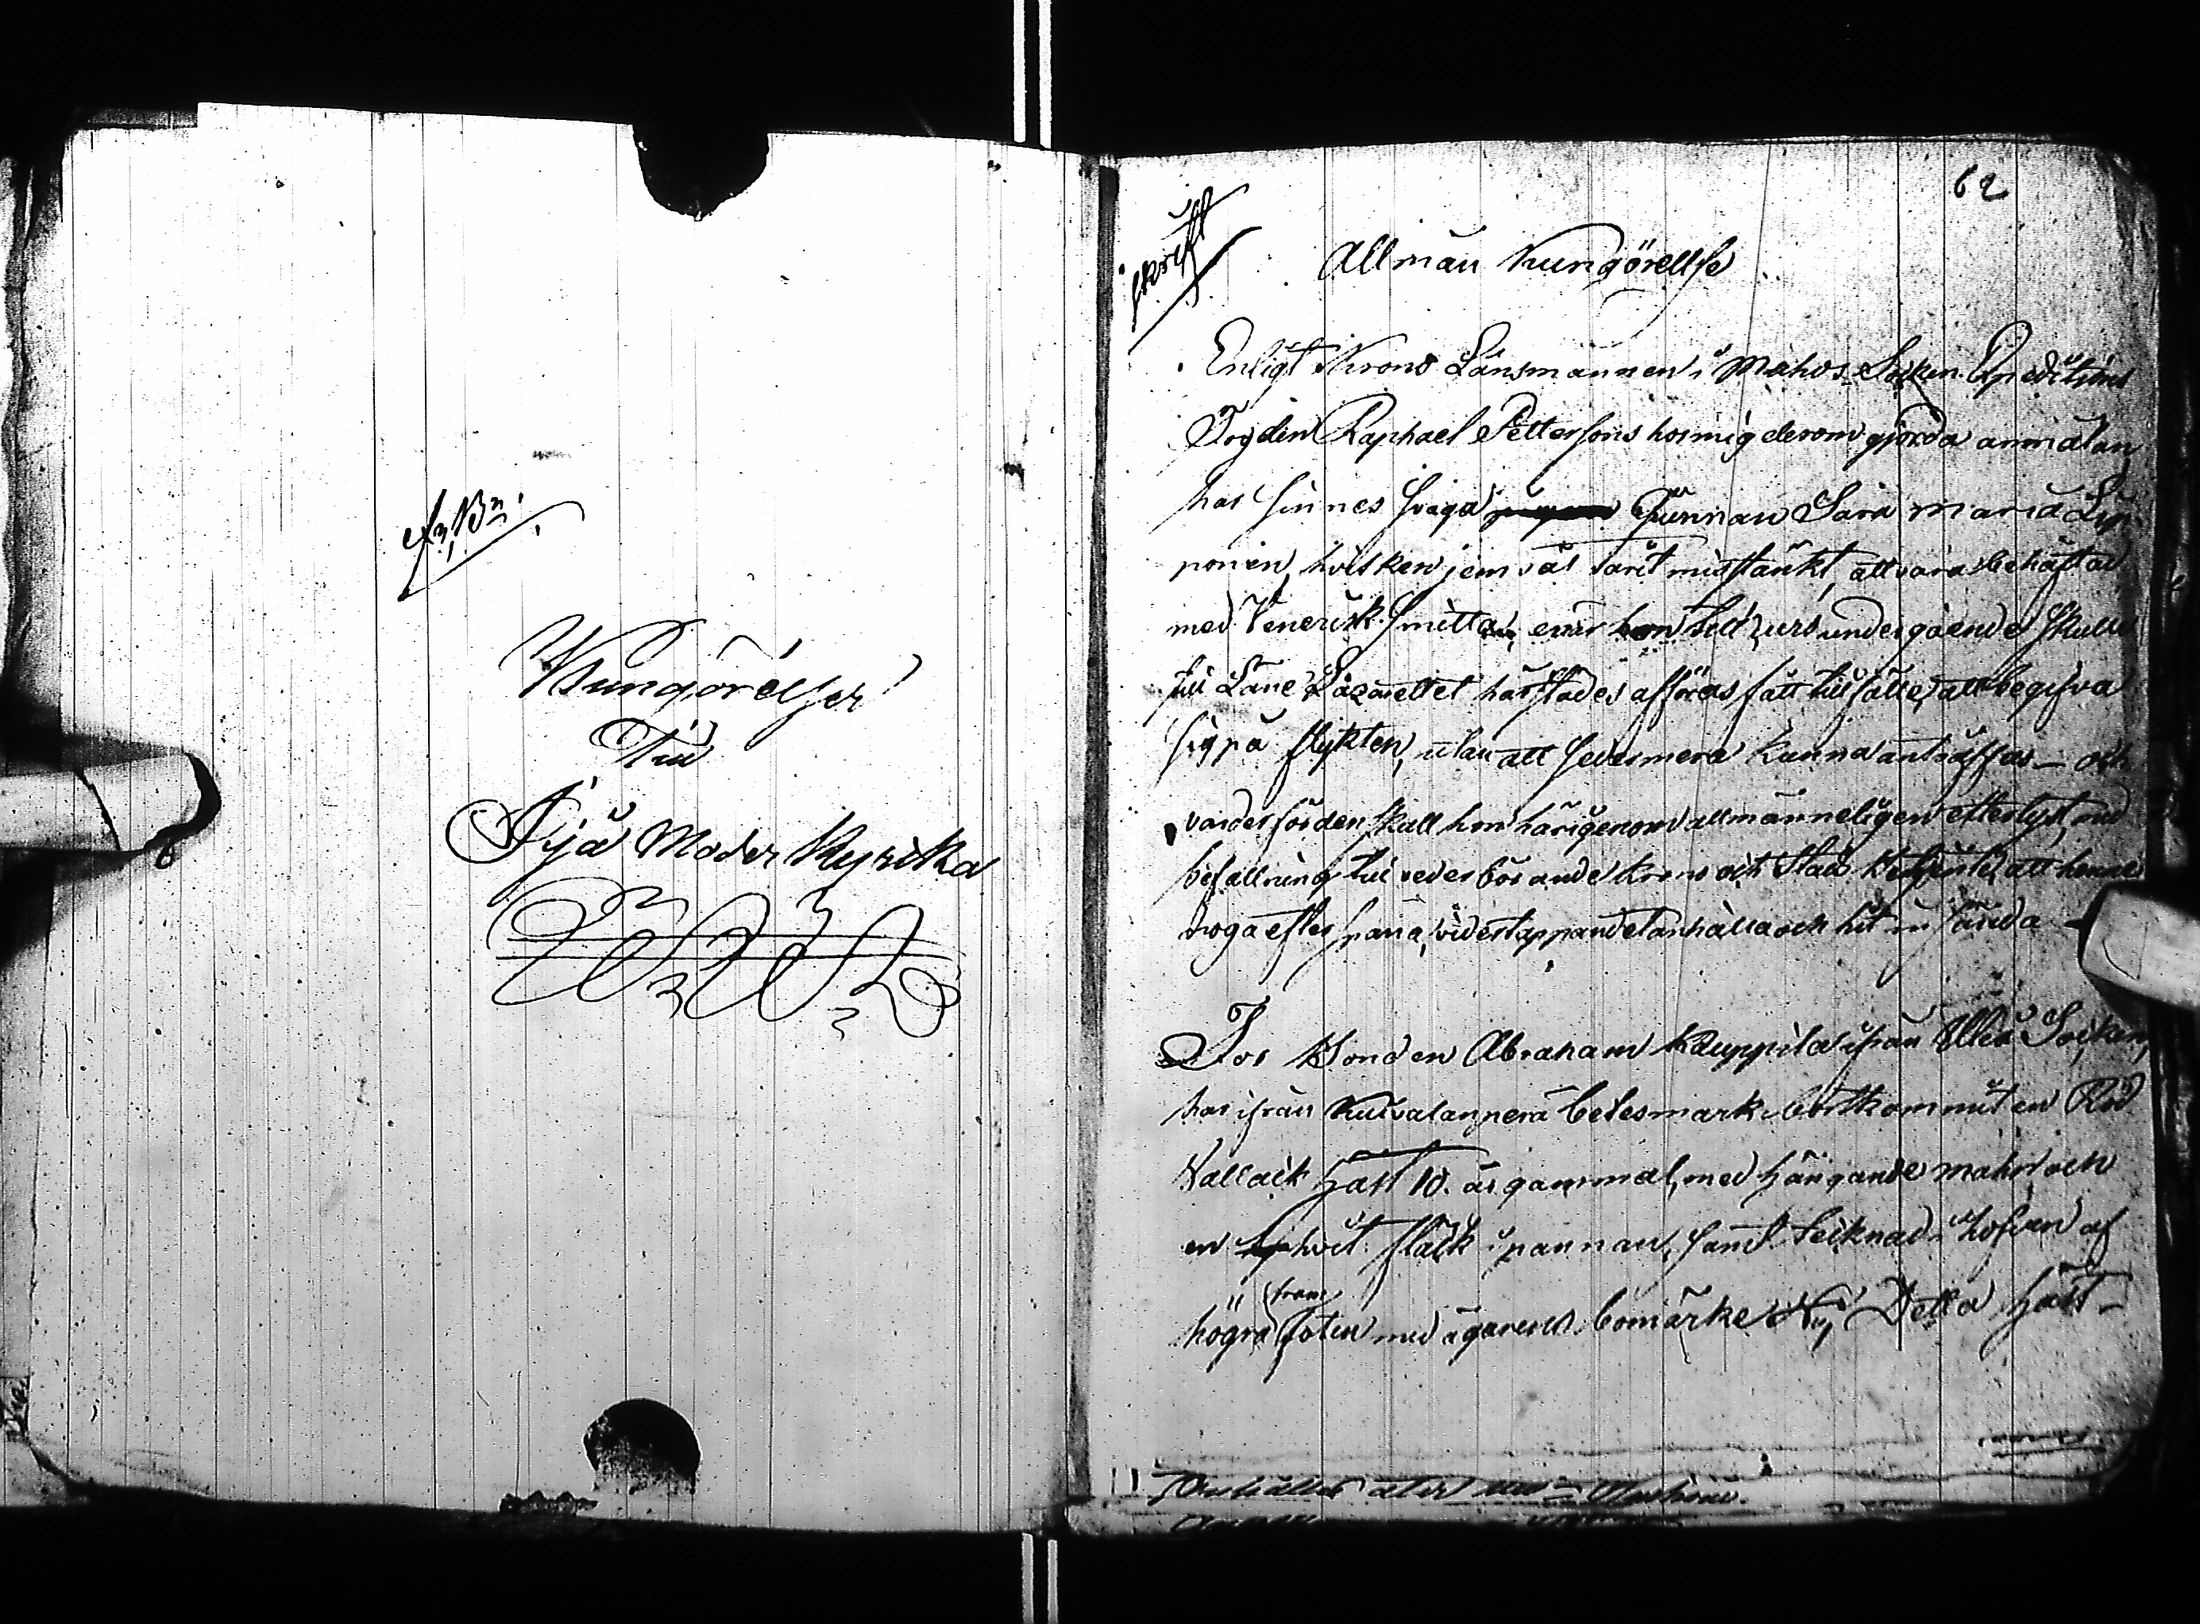 Kungörelser
Till
Ijå Moder Kyrcka
62
Allmän Kungörellse
Enligt Krono Länsmannen i Muhos Socken Expeditions
Fogden Raphael Pettersons hos mig derom gjorda anmälan
har sinnes svaga Qvinnan Sara Maria Lyp-
ponen, hvilken jemväl varit misstänkt, att vara behäftad
med Venerisk smitta, enär hon till curs undergående skulle
till Läne Lazarettet härstädes afföras fått tillfälle, att begifva
sig på flykten, utan att sedermera kunna anträffas – och
varder förden skull hon härigenom allmänneligen efterlyst, med
befallning till vederbörande Krono och Stads Betjente, att henne
noga efterspana, vid ertappandet anhålla och hit insända
For Bonden Abraham Kauppila ifrån Ulleå Socken,
har ifrån Kuivalanperä betesmark bortkommit en Röd
Vallack Häst 10. år gammal, med hängande mahn och
en hvit fläck i pannan, samt tecknad i hofven af
högra fram foten med ägarens bomärke Detta Häst-